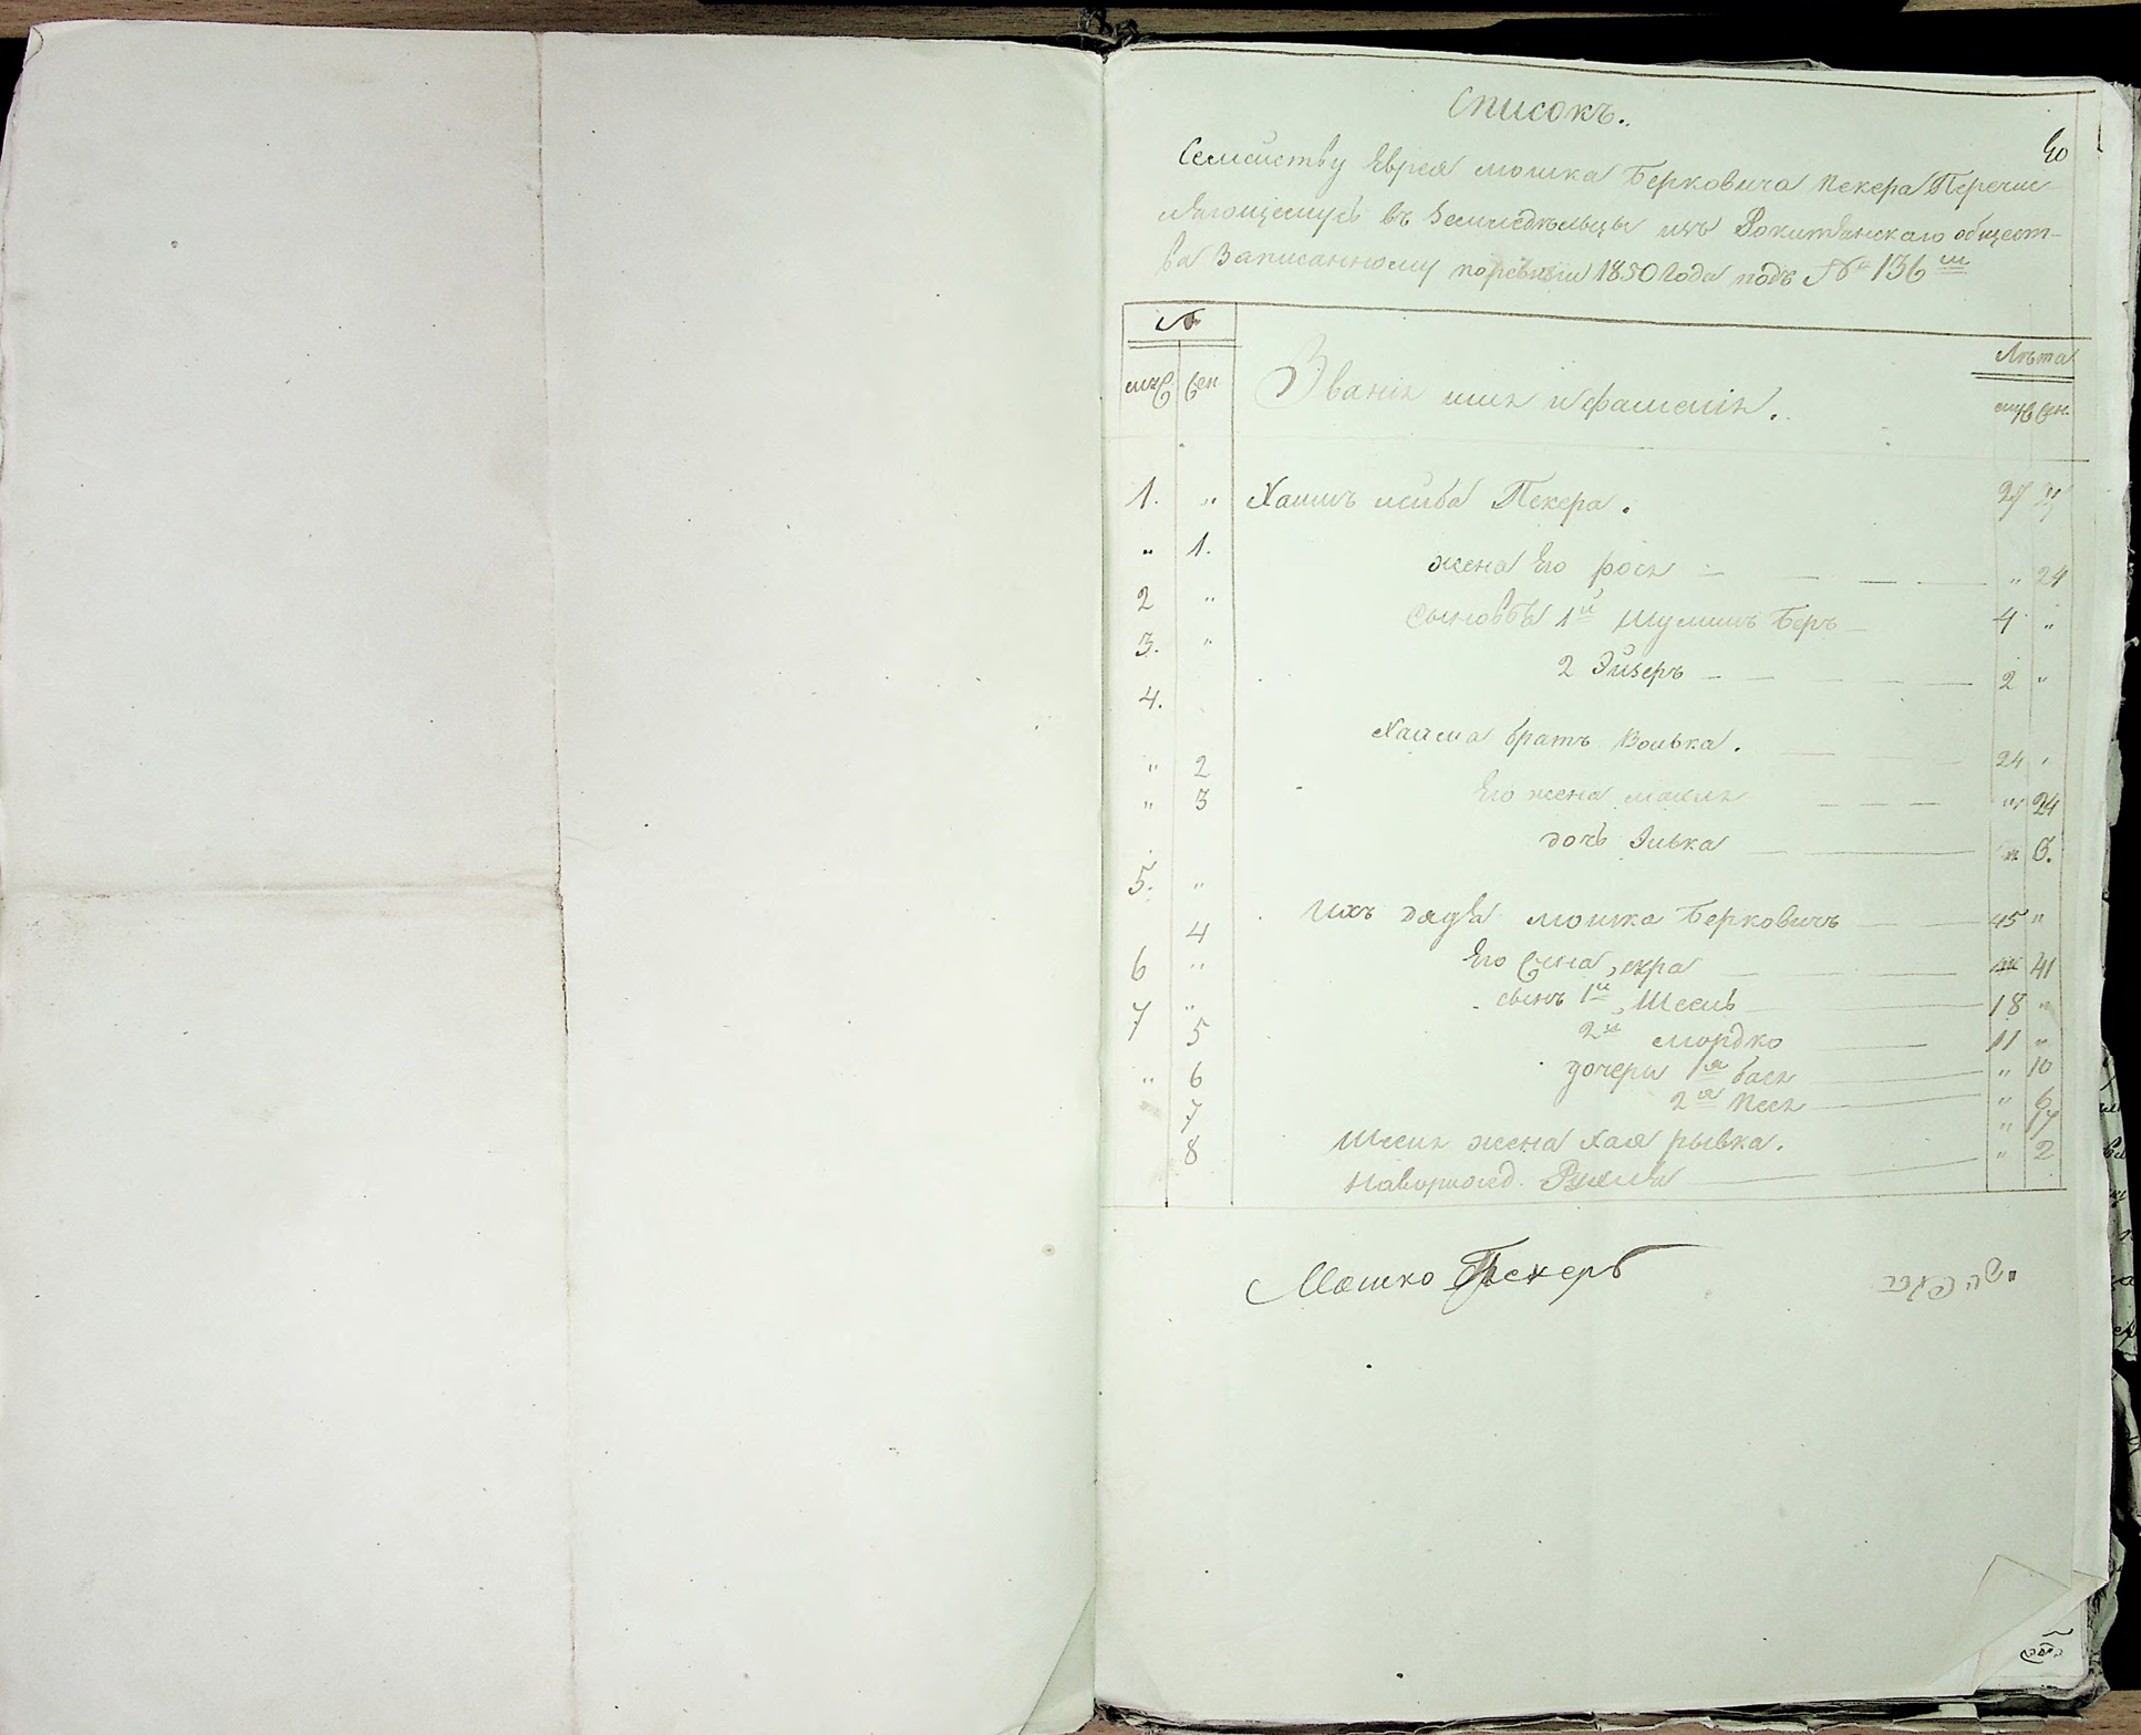 Списокъ.
40
Семейству Еврея мошка Берковича Пекера Перечис
ляющемусь въ Земледѣльцы изъ Рокитянскаго общест-
ва Записанному по ревизіи 1850 Года подъ № 136 м
№
муж жен
Званіе имя и фамилія.
Лѣта
муж жен.
1. " Хаимъ лейба Пекера. 27 "
" 1. жена Его рося — — — — " 24
2 " Сыновья 1й Шулимъ Беръ — 4 "
3. " 2 Эйзеръ — — — — — 2 "
4. Хаима братъ Волька. — — 24 "
" 2 Его жена малка — — — " 24
" 3 дочь Зивка — — " 3.
5. " Ихъ дядя мошка Берковичъ — — 45 "
4 Его жена, сура — — 41
6 " сынъ 1й, Шееиь — 18 "
7 " 2й мордко — 11 "
5 дочери 1я бася — " 10
" 6 2я Песя — " 6
7 жена Хая рывка. " 17
8 " 2
Мошко Пекеръ